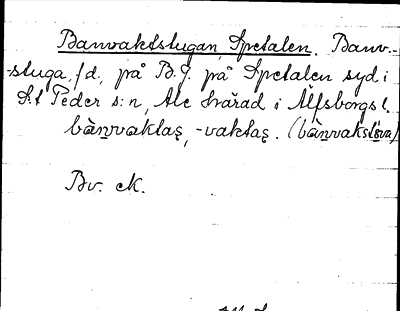 Banvaktstugan, Spetalen. Banv.-
-stuga, f d., på B.J. på Spetalen syd i
S:t Peder s:n, Ale härad i Älfsborgs l.
bànvaktaș, -vaktaș. (bànvakstöva)
Bv. cK.